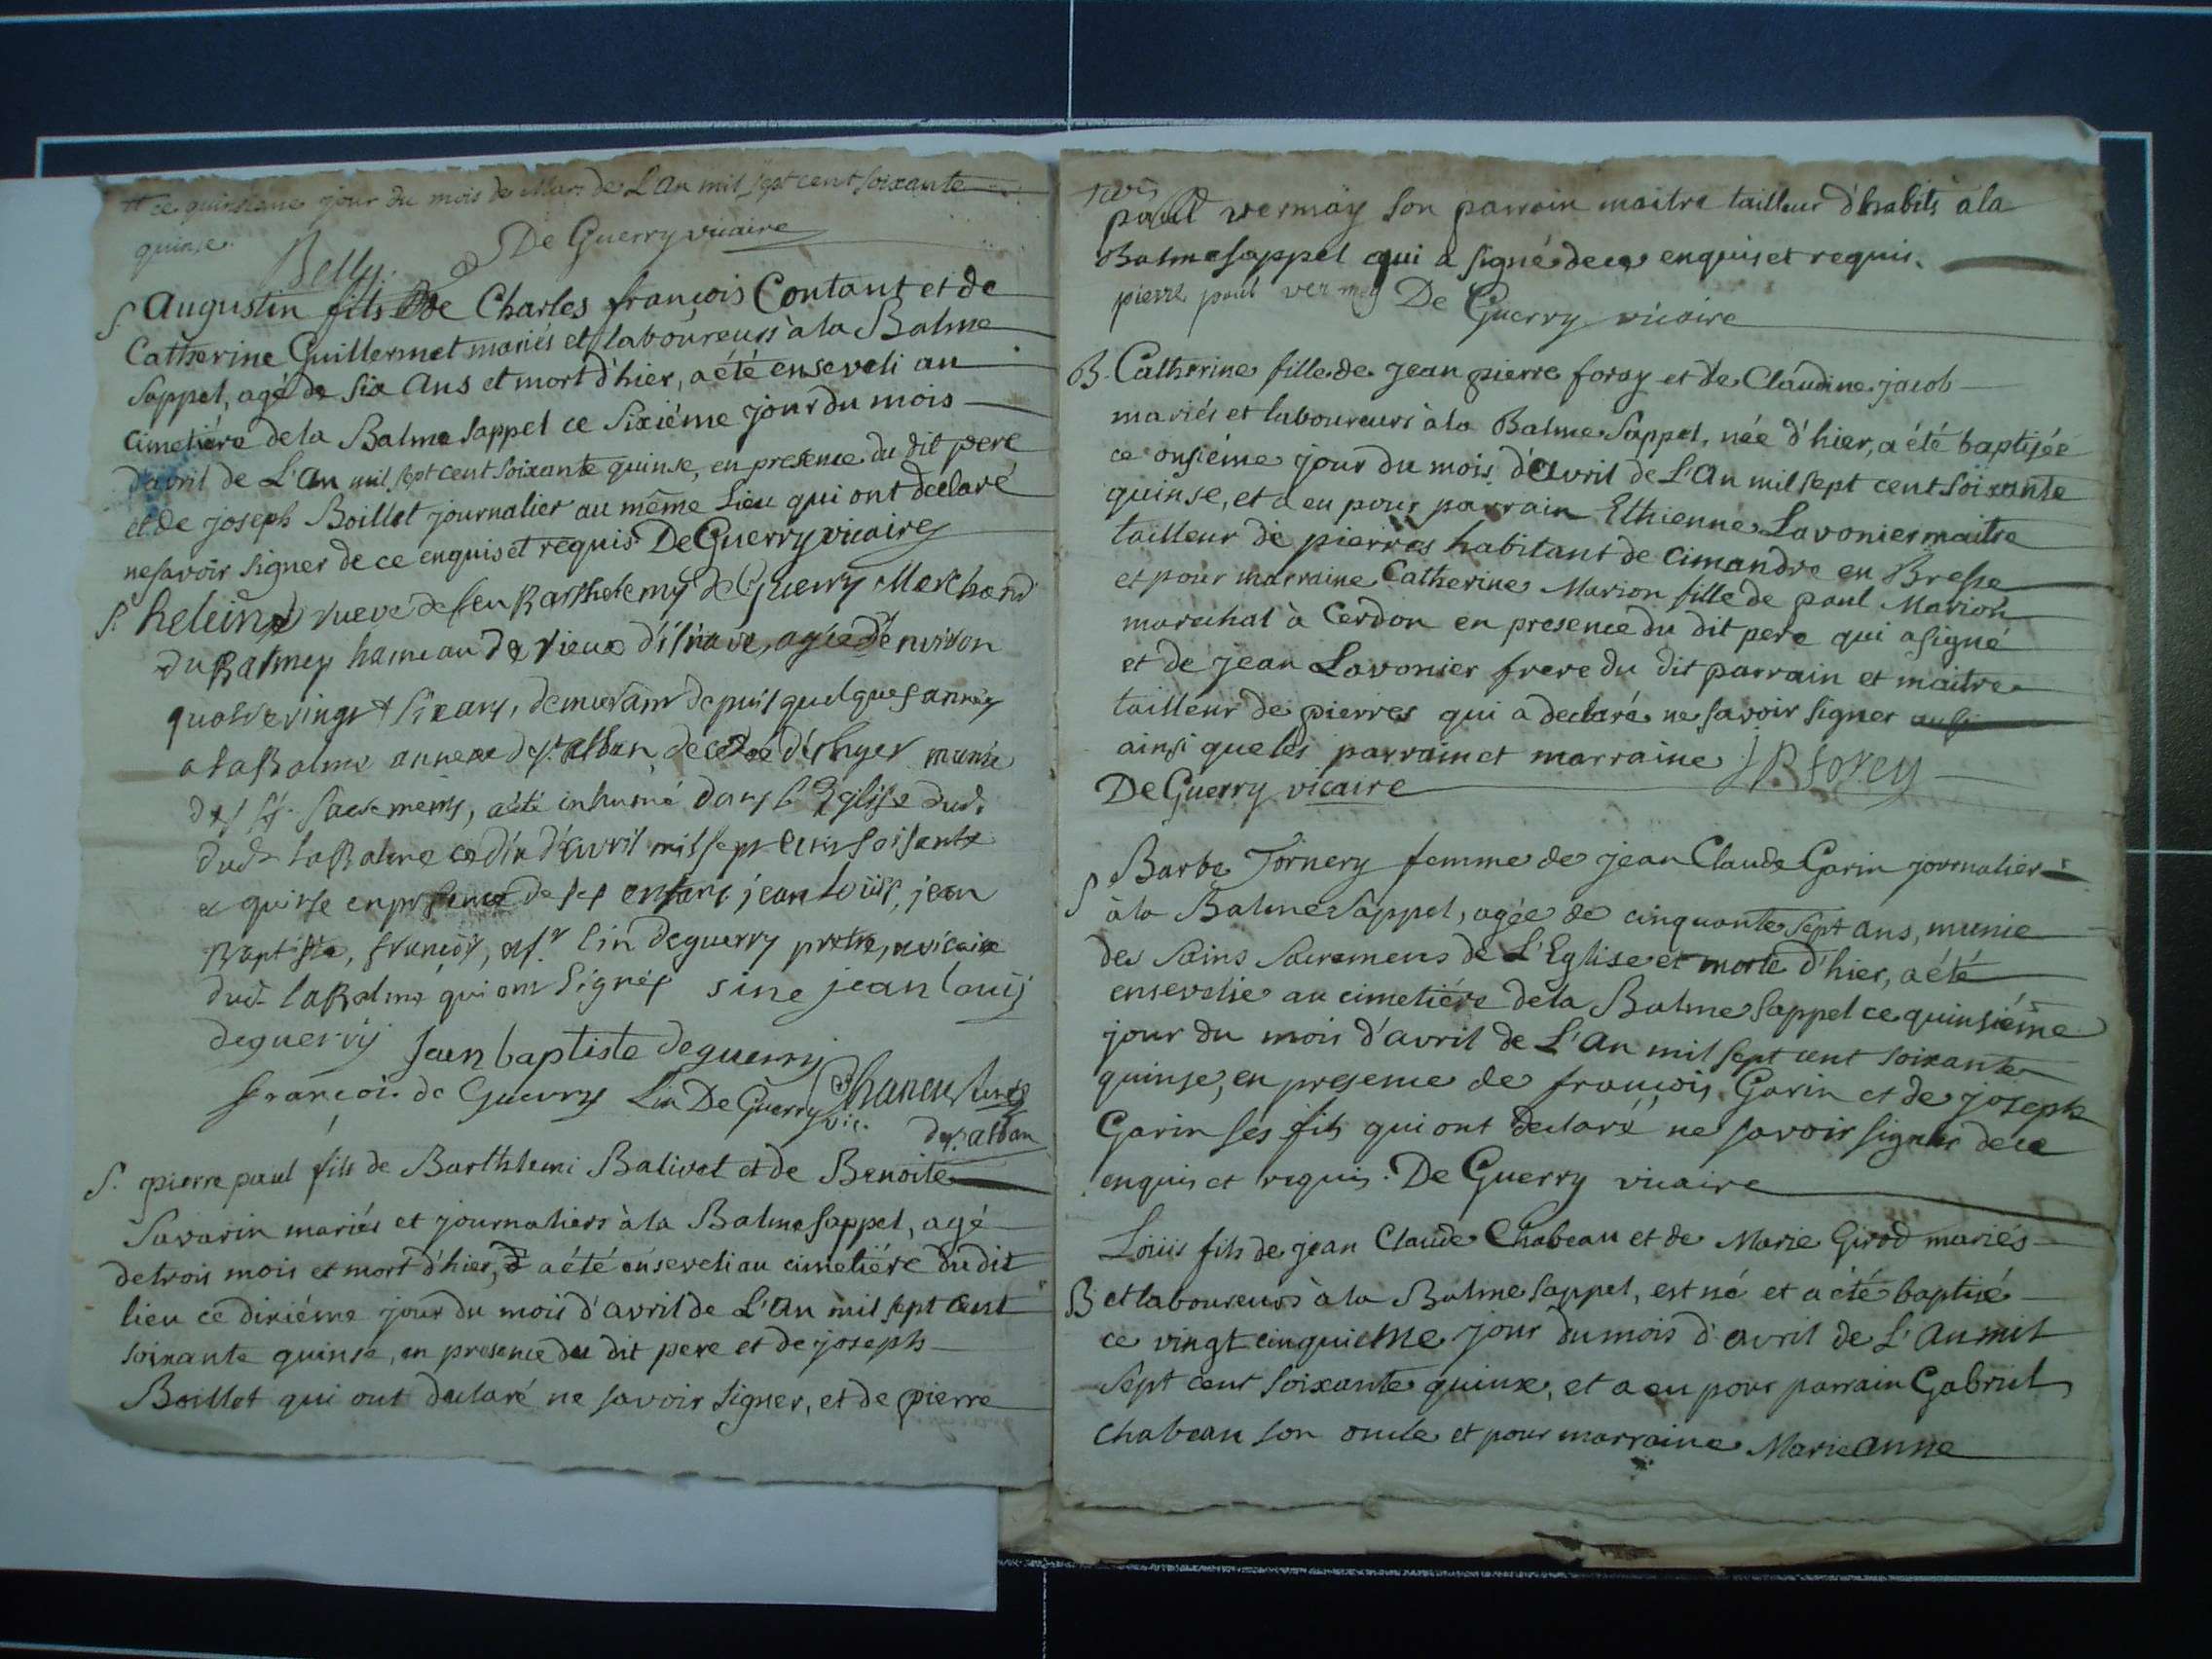 ce quinsieme jour du mois de Mars de L'An mil sept cent soixante
quinse.
Belly. De Guerry vicaire
S Augustin fils de Charles françois Contant et de
Catherine Guillermet mariés et laboureurs à la Balme
Sappel, agé de six ans et mort d'hier, a été enseveli au
cimetiére de la Balme Sappel ce sixiéme jour du mois
d'avril de L'An mil sept cent soixante quinse, en presence du dit pere
et de joseph Boillet journalier au même Lieu qui ont declaré
ne savoir signer de ce enquis et requis. De Guerry vicaire
S. heleine vueve de feu Barthelemy de Guerry Marchand
du Balmey hameau de vieux d'isnave, agée d'environ
quatrevingt & six ans, demeurant depuis quelques années
a la Balme annexe de st alban, decedée d'hyer munie
des sts. sacremens, a été inhumé dans l'Eglise dud.
dud. la Balme ce dix d'avril mil sept cens soissante
& quinse en presence de ses enfans jean loüis, jean
Baptiste, françois, & sr. lin deguerry pretre, vicaire
dud. la Balme qui ont signés sine jean louis
deguerry jean baptiste deguerry
françois de Guerry Lin De Guerry vic.
de st. alban
S. pierre paul fils de Barthlemi Balivet et de Benoite
Savarin mariés et journaliers à la Balme Sappel, agé
de trois mois et mort d'hier, a été enseveli au cimetiére du dit
lieu ce dixiéme jour du mois d'avril de L'An mil sept cent
soixante quinse, en presence du dit pere et de joseph
Boillet qui ont declaré ne savoir signer, et de pierre
paul vermäy son parrain maitre tailleur d'habits à la
Balme Sappel qui a signé de ce enquis et requis.
pierre paul vermey De Guerry vicaire
B. Catherine fille de jean pierre foray et de Claudine jacob
mariés et laboureurs à la Balme Sappel, née d'hier, a été baptisée
ce onsiéme jour du mois d'avril de L'An mil sept cent soixante
quinse, et a eu pour parrain Ethienne Lavonier maitre
tailleur de pierres habitant de Cimandre en Bresse
et pour marraine Catherine Marion fille de paul Marion
marechal à Cerdon en presence du dit pere qui a signé
et de jean Lavonier frere du dit parrain et maitre
tailleur de pierres qui a declaré ne savoir signer
ainsi que les parrain et marraine J P forey
De Guerry vicaire
S Barbe Tornery femme de jean Claude Garin journalier
à la Balme Sappel, agée de cinquante sept ans, munie
des Sains Sacremens de L'Eglise et morte d'hier, a été
ensevelie au cimetiére de la Balme Sappel ce quinsiéme
jour du mois d'avril de L'An mil sept cent soixante
quinse, en presence de françois Garin et de joseph
Garin ses fils qui ont declaré ne savoir signer de ce
enquis et requis. De Guerry vicaire
Loüis fils de jean Claude Chabeau et de Marie Girod mariés
B et laboureurs à la Balme Sappel, est né et a été baptisé
ce vingt cinquieme jour du mois d'avril de L'An mil
sept cent soixante quinze, et a eu pour parrain Gabriel
Chabeau son oncle et pour marraine Marie anne